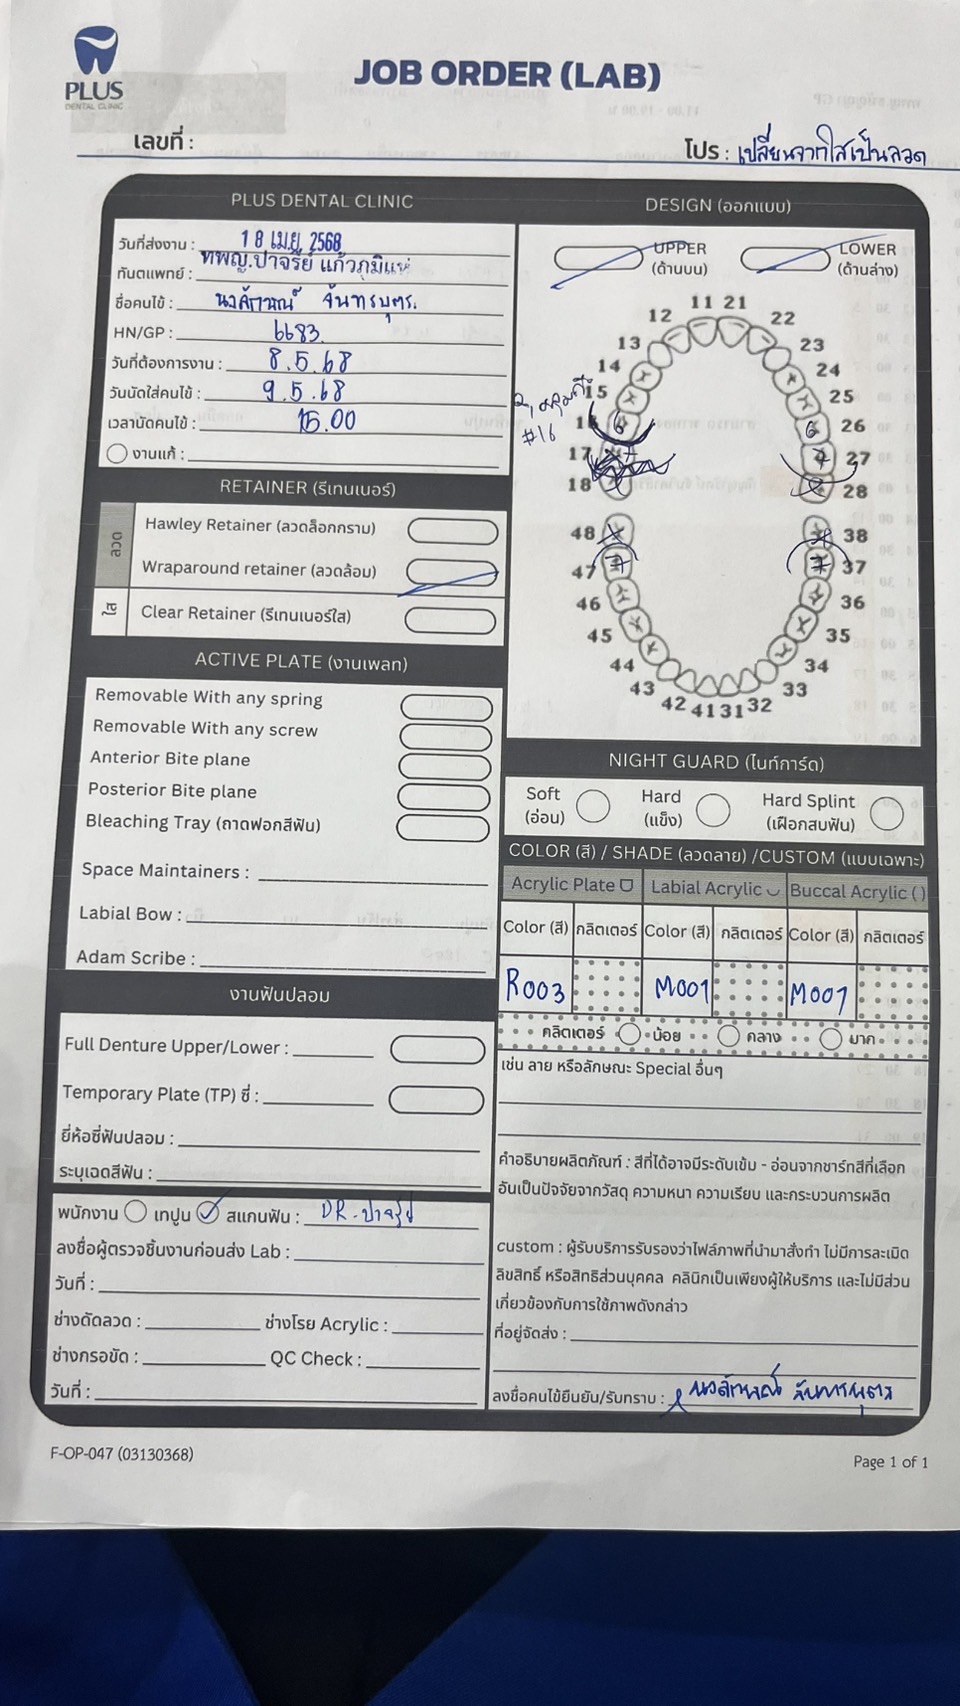 PLUS
DENTAL CLINIC
JOB ORDER (LAB)
เลขที่ :
โปร : เปลี่ยนจากใสเป็นลวด
PLUS DENTAL CLINIC
วันที่ส่งงาน : 18 เม.ย. 2568
ทันตแพทย์ : ทพญ.ปาจรีย์ แก้วภูมิแห่
ชื่อคนไข้ : นวลักษณ์ จันทรบุตร.
HN/GP : 6683
วันที่ต้องการงาน : 8.5.68
วันนัดใส่คนไข้ : 9.5.68
เวลานัดคนไข้ : 15.00
งานแก้ :
RETAINER (รีเทนเนอร์)
ลวด
Hawley Retainer (ลวดล็อกกราม)
Wraparound retainer (ลวดล้อม)
ใส
Clear Retainer (รีเทนเนอร์ใส)
ACTIVE PLATE (งานเพลท)
Removable With any spring
Removable With any screw
Anterior Bite plane
Posterior Bite plane
Bleaching Tray (ถาดฟอกสีฟัน)
Space Maintainers :
Labial Bow :
Adam Scribe :
งานฟันปลอม
Full Denture Upper/Lower :
Temporary Plate (TP) ซี่ :
ยี่ห้อซี่ฟันปลอม :
ระบุเฉดสีฟัน :
พนักงาน เทปูน สแกนฟัน : DR. ปาจรีย์
ลงชื่อผู้ตรวจชิ้นงานก่อนส่ง Lab :
วันที่ :
ช่างดัดลวด : ช่างโรย Acrylic :
ช่างกรอขัด : QC Check :
วันที่ :
DESIGN (ออกแบบ)
UPPER
(ด้านบน)
LOWER
(ด้านล่าง)
11 21
12 22
13 23
14 24
15 25
#16
6 6 26
17 7 27
18 28
48 38
47 7 7 37
46 36
45 35
44 34
43 33
42 41 31 32
NIGHT GUARD (ไนท์การ์ด)
Soft
(อ่อน)
Hard
(แข็ง)
Hard Splint
(เฝือกสบฟัน)
COLOR (สี) / SHADE (ลวดลาย) /CUSTOM (แบบเฉพาะ)
Acrylic Plate Labial Acrylic Buccal Acrylic ( )
Color (สี) กลิตเตอร์ Color (สี) กลิตเตอร์ Color (สี) กลิตเตอร์
R003 M001 M001
กลิตเตอร์ น้อย กลาง มาก
เช่น ลาย หรือลักษณะ Special อื่นๆ
คำอธิบายผลิตภัณฑ์ : สีที่ได้อาจมีระดับเข้ม - อ่อนจากชาร์ทสีที่เลือก
อันเป็นปัจจัยจากวัสดุ ความหนา ความเรียบ และกระบวนการผลิต
custom : ผู้รับบริการรับรองว่าไฟล์ภาพที่นำมาสั่งทำ ไม่มีการละเมิด
ลิขสิทธิ์ หรือสิทธิส่วนบุคคล คลินิกเป็นเพียงผู้ให้บริการ และไม่มีส่วน
เกี่ยวข้องกับการใช้ภาพดังกล่าว
ที่อยู่จัดส่ง :
ลงชื่อคนไข้ยืนยัน/รับทราบ : นวลักษณ์ จันทรบุตร
F-OP-047 (03130368)
Page 1 of 1